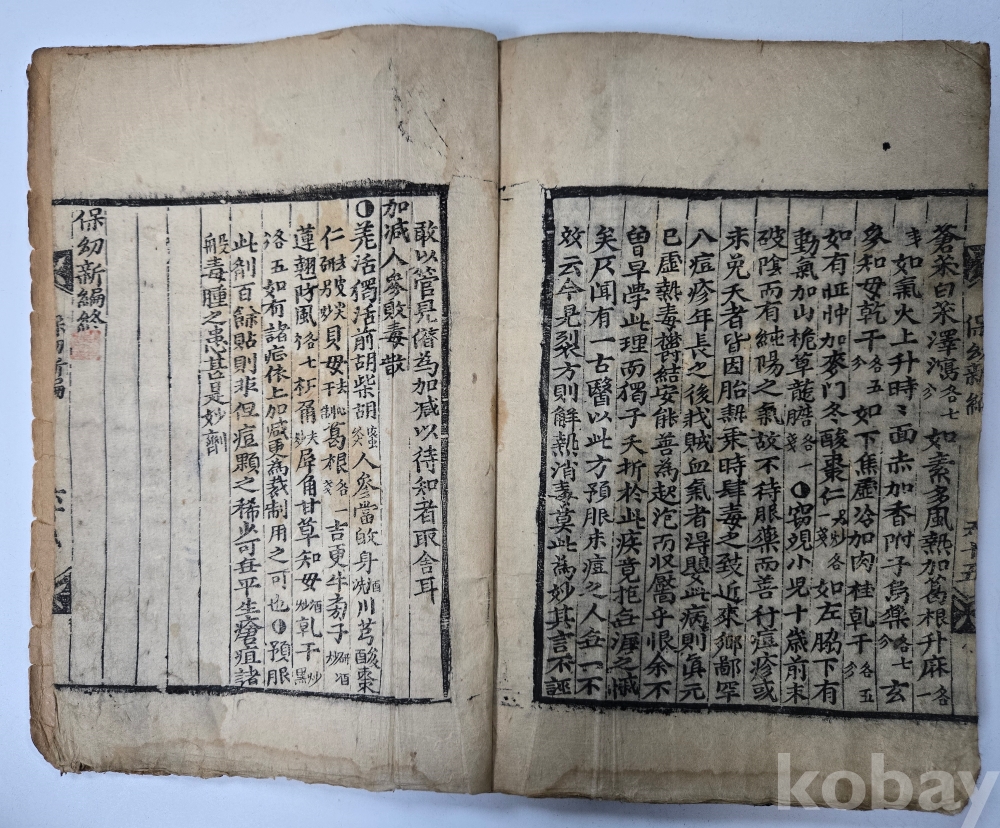 蒼朮白朮澤瀉各七分如素多風熱加葛根升麻各一
戔如氣火上升時時面赤加香附子烏藥各七分玄
參知母乾干各五分如下焦虛冷加肉桂乾干各五分
如有怔忡加麥門冬酸棗仁各戔如左脇下有
動氣加山梔草龍膽各一戔竊覌小児十歲前未
破陰而有純陽之氣故不待服藥而善行痘疹或
未免夭者皆因胎熱乘時肆毒之致近來鄉鄙罕
八痘疹年長之後戕賊血氣者淂嬰此病則眞元
已虛熱毒欝結安能善為起泡而収靨乎恨余不
曽早學此理而獨子夭折於此疾竟抱白涯之慽
矣仄聞有一古醫以此方預服未痘之人無一不
效云今見裂方則解熱消毒莫此為妙其言不誣
保幼新編
敢以管見僭為加減以待知者取舍耳
加减人參敗毒散
羗活獨活前胡柴胡人參當歸身酒洗川芎酸棗
仁貝母葛根各一戔吉更牛旁子
蓮翹防風各七分枳角犀角甘草知母乾干
各五如有諸症依上加减更為裁制用之可也預服
此剤百餘貼則非但痘顆之稀少可無平生瘡疽諸
般毒腫之患甚是妙劑
保幼新編終
保幼新編
kobay